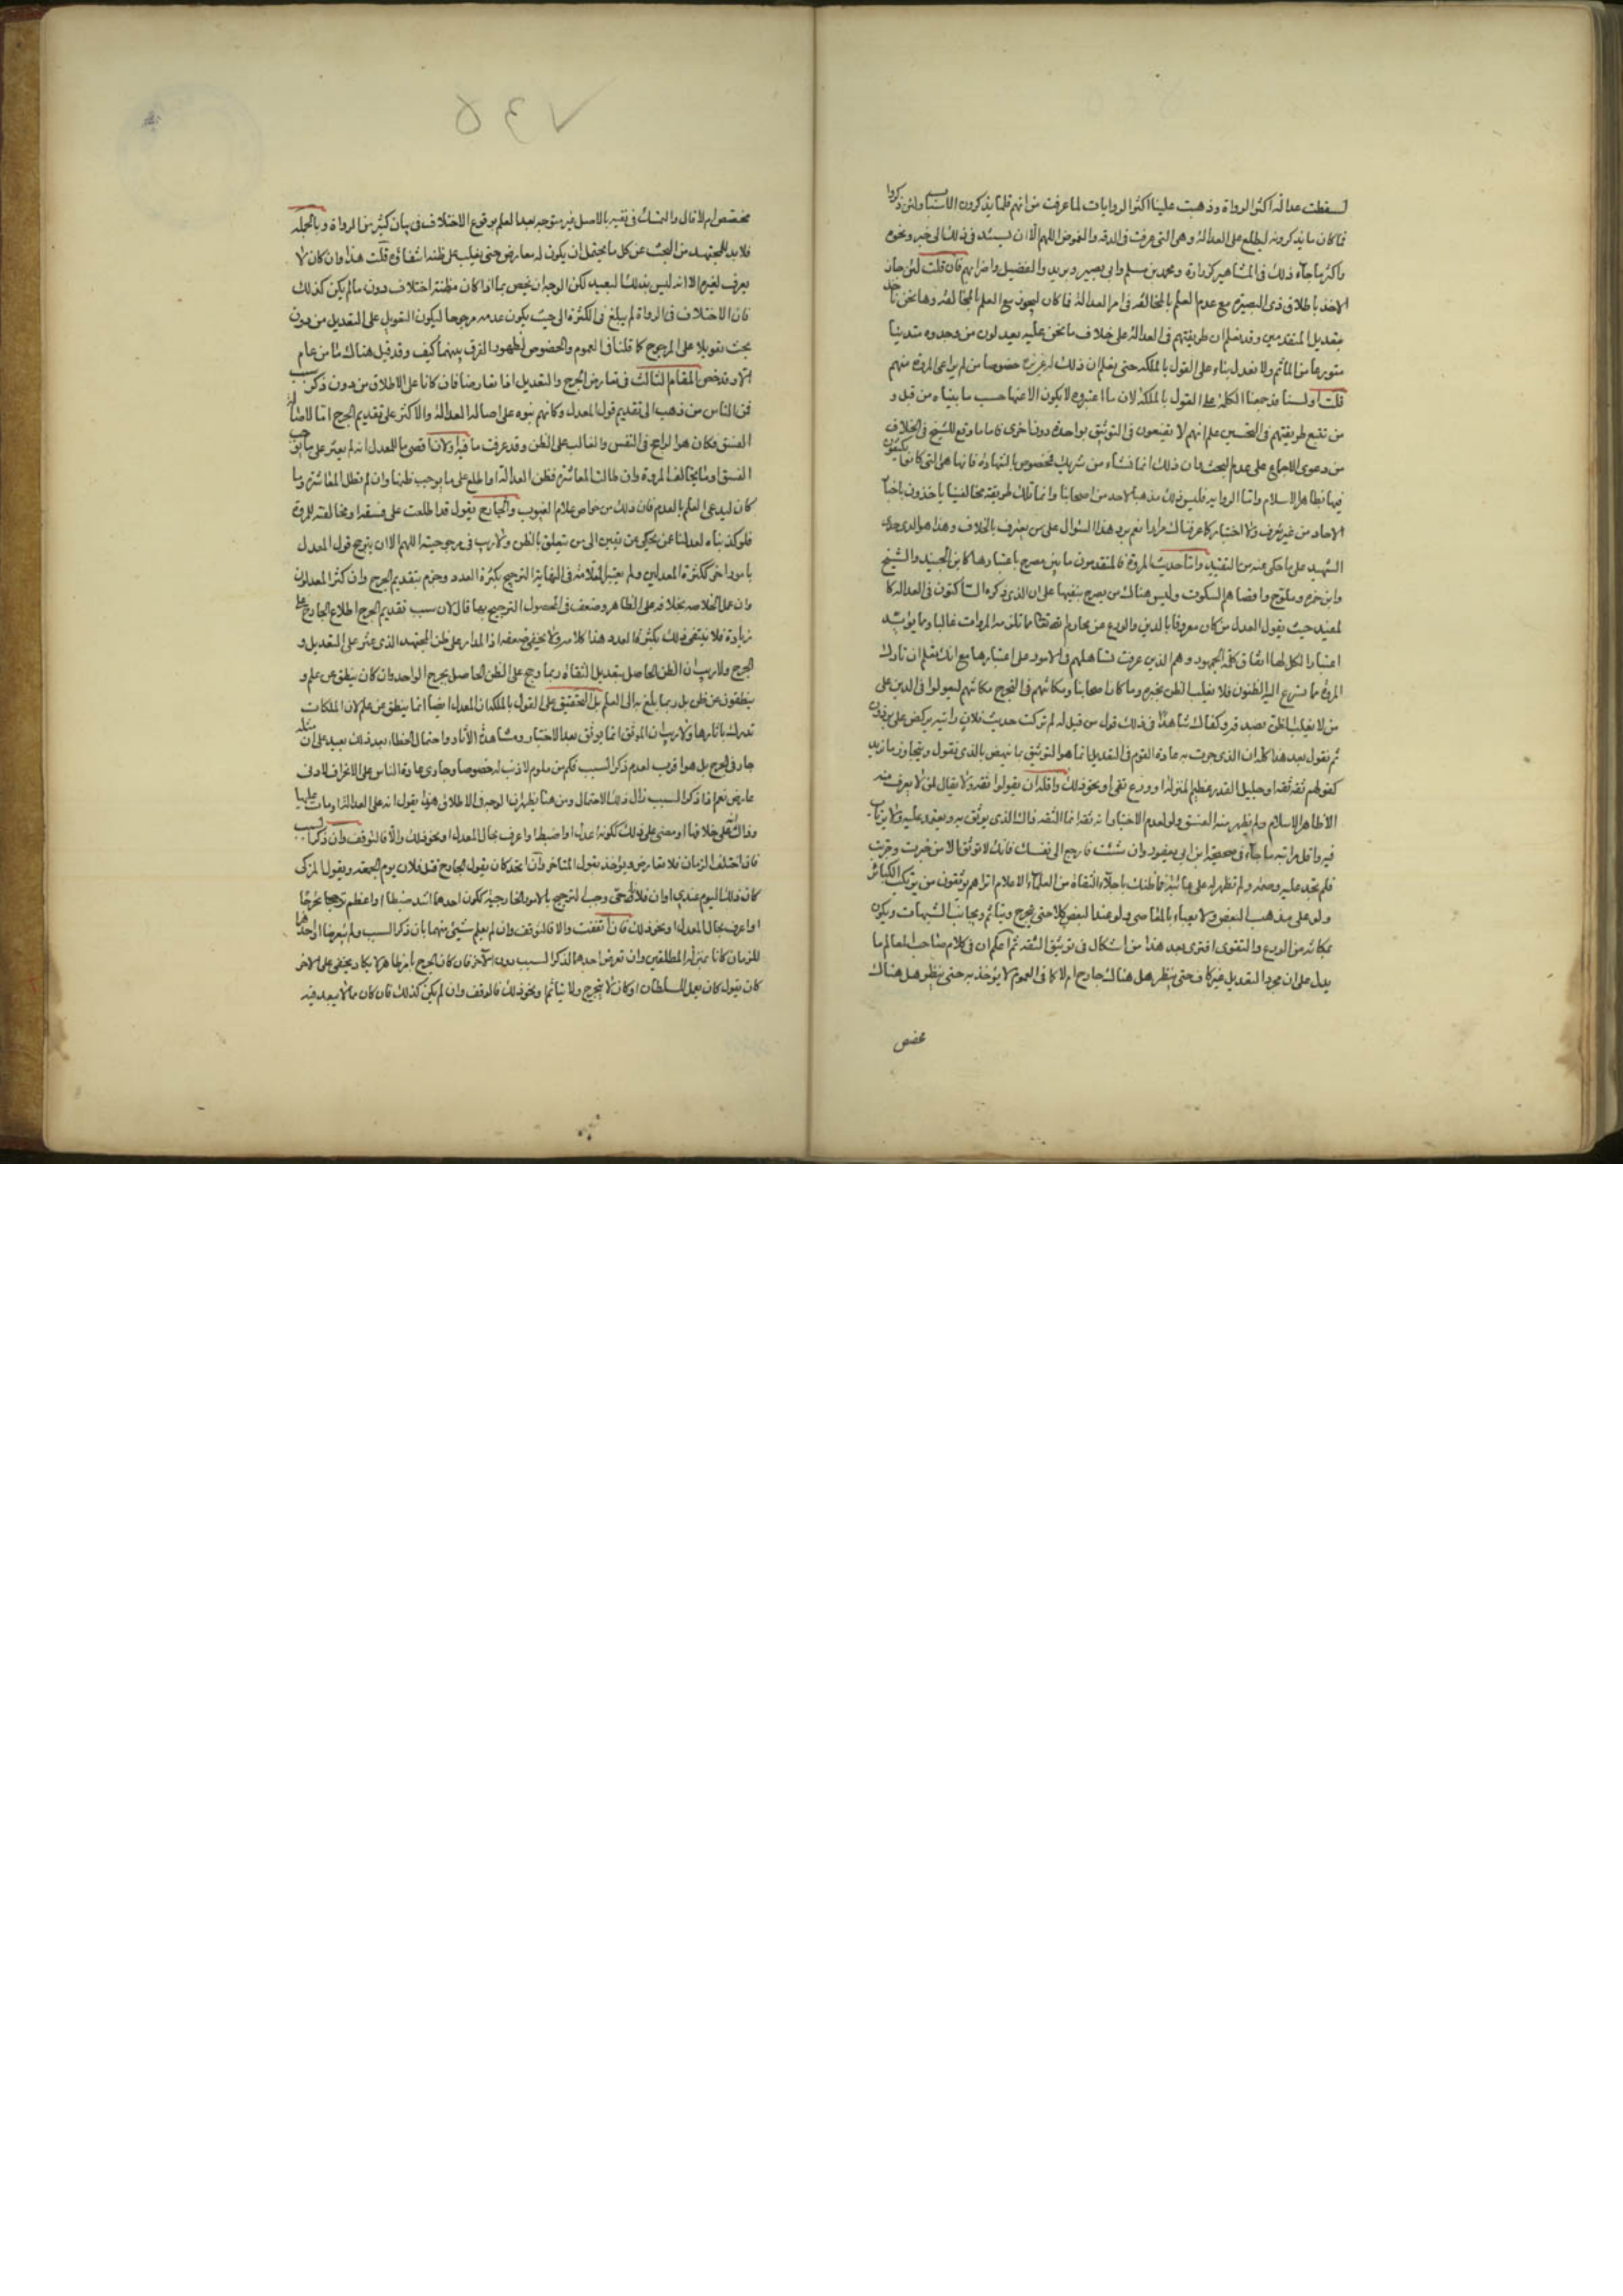 لسقطت عدالة اكثر الرواة وذهبت علينا اكثر الروايات لما عرفت من انهم قلما يذكرون الاسباب ولئن ذكروا
فما كان ما يذكرونه ليطلع على العدالة وهى التى عرفت فى الدقة والغموض اللهم الا ان يسند فى ذلك الى خبر ونحوه
واكثر ما جاء ذلك فى المشاهير كزرارة ومحمد بن مسلم وابى بصير وبريد والفضيل واضرابهم فان قلت لئن جاز
الاخذ باطلاق ذى البصيرة مع عدم العلم بالمخالفة فى امر العدالة فما كان ليجوز مع العلم بالمخالفة وها نحن ناخذ
بتعديل المتقدمين وقد نعلم ان طريقتهم فى العدالة على خلاف ما نحن عليه يعدلون من وجدوه متدينا
متورعا من المآثم ولا نعدل بناء على القول بالملكة حتى نعلم ان ذلك له عن خصوصا من لم يراعى المروة منهم
قلت اولسنا قد جمعنا الكلمة على القول بالملكة لان ما اعتبروه لا يكون الا عنها حسب ما بيناه من قبل و
من تتبع طريقتهم فى التحسين علم انهم لا يقنعون فى التوثيق بواحدة دون اخرى فاما ما وقع للشيخ فى الخلاف
من دعوى الاجماع على عدم البحث وان ذلك انما نشاء من شريك فمخصوص بالشهادة فانها هى التى كانوا يكتفون
فيها بظاهر الاسلام واما الرواية فليس ذلك مذهبا لاحد من اصحابنا وانما تلك طريقة مخالفينا ياخذون باخبار
الاحاد من غير تعرف ولا اختبار كما عرفناك مرارا نعم يرد هذا السؤال على من يعترف بالخلاف وهذا هو الذى حدى
الشهيد على ما حكى عنه من التقييد واما حديث المروة فالمتقدمون ما بين مصرح باعتبارها كابن الجنيد والشيخ
وابن حمزة وملوح واقصاهم السكوت وليس هناك من يصرح بنفيها على ان الذى ذكره الساكتون فى العدالة كا
لمفيد حيث يقول العدل من كان معروفا بالدين والورع عن محارم الله تعالى ما تلزمه المروات غالبا وما يؤيد
اعتبارا لكل لها اتفاق كلمة الجمهور وهم الذين عرفت تساهلهم فى الامور على اعتبارها مع انك تعلم ان تارك
المروة ما تسرع اليه الظنون فلا يغلب الظن بخبره وما كان اصحابنا ومكانهم فى التحرج مكانهم ليعولوا فى الدين على
من لا يغلب الظن بصدقه وكفاك شاهدا فى ذلك قول من قيل له لم تركت حديث فلان رايته يركض على برذون
ثم نقول بعد هذا كله ان الذى جرت به عادة القوم فى التعديل انما هو التوثيق ما ينهض بالذى نقول ويتجاوز ما نريد
كقولهم ثقة ثقة او جليل القدر عظيم المنزلة او ورع تقى او نحو ذلك واقله ان يقولوا ثقة ولا يقال لمن لا يعرف منه
الا ظاهر الاسلام ولم يظهر منه الفسق ولو لعدم الاختبار انه ثقة انما الثقة ذاك الذى يوثق به ويعتمد عليه ولا يرتاب
فيه واقل مراتبه ما جاء فى صحيحة ابن ابى يعفور وان شئت فارجع الى نفسك فانك لا توثق الا من خبرت وجربت
فلم تجد عليه وصمة ولم تظهر له على عائبة فما ظنك باجلاء الثقاة من العلماء والاعلام اتراهم يوثقون من يرتكب الكبائر
ولو على مذهب البعض ولا يعباء بالمعاصى ولو عند البعض كلا حتى يتحرج ويتأثم ويجانب الشبهات ويكون
بمكانة من الورع والتقوى افترى بعد هذا من اشكال فى توثيق الثقة ثم اعلم ان فى كلام صاحب المعالم ما
يدل على ان مجرد التعديل غير كاف حتى ينظر هل هناك جارح ام لا كما فى العموم لا يؤخذ به حتى ينظر هل هناك
مخصص
٧٤٥
مخصص ام لا قال والتمسك فى نفيه بالاصل غير متوجه بعد العلم بوقوع الاختلاف فى بيان كثير من الرواة وبالجملة
فلا بد للمجتهد من البحث عن كل ما يحتمل ان يكون له معارض حتى يغلب على ظنه انتفاؤه قلت هذا وان كان لا
يعرف لغيره الا انه ليس بذلك البعيد لكن الوجه ان يخص بما اذا كان مظنة اختلاف دون ما لم يكن كذلك
فان الاختلاف فى الرواة لم يبلغ فى الكثرة الى حيث يكون عدمه مرجوحا ليكون التعويل على التعديل من دون
بحث تعويلا على المرجوح كما قلنا فى العموم والخصوص لظهور الفرق بينهما كيف وقد قيل هناك ما من عام
الا وقد خص المقام الثالث فى تعارض الجرح والتعديل اذا تعارضا فان كانا على الاطلاق من دون ذكر سبب
فمن الناس من ذهب الى تقديم قول المعدل وكانهم بنوه على اصالة العدالة والاكثر على تقديم الجرح اما لاصالة
الفسق فكان هو الراجح فى النفس والغالب على الظن وقد عرفت ما فيه او لان اقصى ما للمعدل انه لم يعثر على ما يوجب
الفسق او ما يخالف المروة وان طالت المعاشرة فظن العدالة او اطلع على ما يوجب ظنها وان لم تطل المعاشرة وما
كان ليدعى العلم بالعدم فان ذلك من خواص علام الغيوب والجارح يقول قد اطلعت على فسقه او مخالفته للمروة
فلو كذبناه لعدلنا عن يحكى عن يقين الى من يتعلق بالظن ولا ريب فى مرجوحيته اللهم الا ان يترجح قول المعدل
بامور اخر ككثرة المعدلين ولم يعتبر العلامة فى النهاية الترجيح بكثرة العدد وجزم بتقديم الجرح وان كثر المعدلون
وان عمل الخلاصة بخلافه على الظاهر وضعف فى المحصول الترجيح بها قال لان سبب تقديم الجرح اطلاع الجارح على
زيادة فلا ينتفى ذلك بكثرة العدد هذا كلامه ولا يخفى ضعفه اذ المدار على ظن المجتهد الذى عثر على التعديل و
الجرح ولا ريب ان الظن الحاصل بتعديل الثقاة ربما رجح على الظن الحاصل بجرح الواحد وان كان ينطق عن علم و
ينطقون عن ظن بل ربما بلغ به الى العلم بل التحقيق على القول بالملكة ان المعدل ايضا انما ينطق عن علم لان الملكات
تدرك باثارها ولا ريب ان الموثق انما يوثق بعد الاختبار ومشاهدة الآثار واحتمال الخطاء بعد ذلك بعيد على ان مثله
جار فى الجرح بل هو اقرب لعدم ذكر السبب فكم من ملوم لا ذنب له خصوصا وجارى عادة الناس على الانحراف لادنى
عارض نعم اذا ذكر السبب زال ذلك الاحتمال ومن هنا يظهر ان الوجه فى الاطلاق هذا يقول انه على العدالة ومات عليها
وذاك على خلافها او مضى على ذلك ككونه اعدل او اضبط او اعرف بحال المعدل او نحو ذلك والا فالتوقف وان ذكر السبب
فان اختلف الزمان فلا تعارض ويؤخذ بقول المتاخر وان اتحد كان يقول الجارح قتل فلان يوم الجمعة ويقول المزكى
كان ذلك اليوم عندى او ان فلانا حى وجب الترجيح بالامور الخارجية ككون احدهما اشد ضبطا او اعظم تحرجا
او اعرف بحال المعدل او نحو ذلك فان اتفقت والا فالتوقف وان لم يعلم شئ منهما بان ذكر السبب ولم يتعرضا احدهما
للزمان كانا بمنزلة المطلقين وان تعرض احدهما لذكر السبب دون الآخر فان كان الجرح بامر ظاهر لا يكاد يخفى على الاخر
كان يقول كان يعمل للسلطان او كان لا يتحرج ولا يتأثم ونحو ذلك فالوقف وان لم يكن كذلك فان كان مما لا يبعد فيه